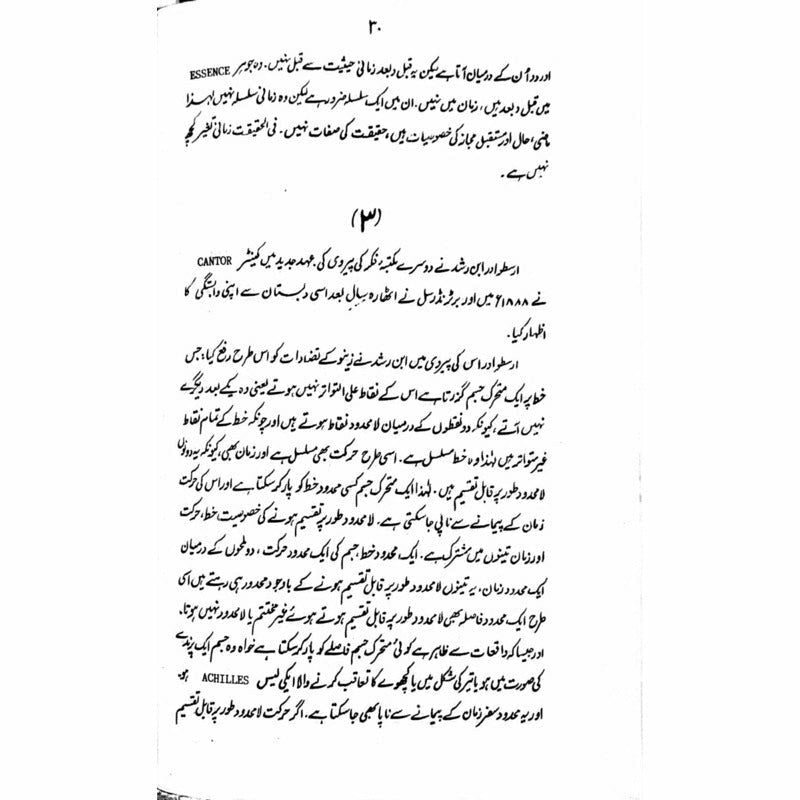 ۳۰
اور دو اُن کے درمیان آتا ہے لیکن یہ قبل و بعد زمانی حیثیت سے قبل نہیں۔ وہ جوہر ESSENCE
میں قبل و بعد ہیں، زمان میں نہیں۔ ان میں ایک سلسلہ ضرور ہے لیکن وہ زمانی سلسلہ نہیں لہٰذا
ماضی، حال اور مستقبل مجاز کی خصوصیات ہیں، حقیقت کی صفات نہیں۔ فی الحقیقت زمانی تغیر کچھ
نہیں ہے۔
(۳)
ارسطو اور ابن رشد نے دوسرے مکتبۂ فکر کی پیروی کی۔ عہد جدید میں کینٹر CANTOR
نے ۱۸۸۸ء میں اور برٹرنڈ رسل نے اٹھارہ سال بعد اسی دبستان سے اپنی وابستگی کا
اظہار کیا۔
ارسطو اور اس کی پیروی میں ابن رشد نے زینو کے تضادات کو اس طرح رفع کیا: جس
خط پر ایک متحرک جسم گزرتا ہے اس کے نقاط علی التواتر نہیں ہوتے یعنی وہ یکے بعد دیگرے
نہیں آتے، کیونکہ دو نقطوں کے درمیان لامحدود نقاط ہوتے ہیں اور چونکہ خط کے تمام نقاط
غیر متواتر ہیں لہٰذا وہ خط مسلسل ہے۔ اسی طرح حرکت بھی مسلسل ہے اور زمان بھی، کیونکہ یہ دونوں
لامحدود طور پر قابل تقسیم ہیں۔ لہٰذا ایک متحرک جسم کسی محدود خط کو پار کر سکتا ہے اور اس کی حرکت
زمان کے پیمانے سے ناپی جا سکتی ہے۔ لامحدود طور پر تقسیم ہونے کی خصوصیت خط، حرکت
اور زمان تینوں میں مشترک ہے۔ ایک محدود خط، جسم کی ایک محدود حرکت، دو لمحوں کے درمیان
ایک محدود زمان، یہ تینوں لامحدود طور پر قابل تقسیم ہونے کے باوجود محدود ہی رہتے ہیں اسی
طرح ایک محدود فاصلہ بھی لامحدود طور پر قابل تقسیم ہوتے ہوئے غیر مختتم یا لامحدود نہیں ہوتا۔
اور جیسا کہ واقعات سے ظاہر ہے کوئی متحرک جسم فاصلے کو پار کر سکتا ہے خواہ وہ جسم ایک پرندے
کی صورت میں ہو یا تیر کی شکل میں یا کچھوے کا تعاقب کرنے والا ایکی لیس ACHILLES ہو۔
اور یہ محدود سفر زمان کے پیمانے سے ناپا بھی جا سکتا ہے۔ اگر حرکت لامحدود طور پر قابل تقسیم